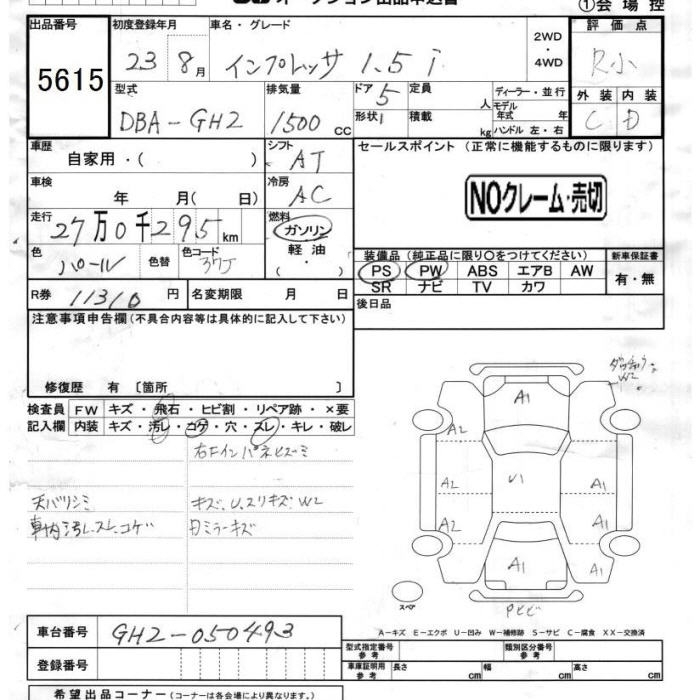 オークション出品申込書
①会場控
出品番号 初度登録年月 車名・グレード 2WD ・ 4WD 評価点
5615 23 8月 インプレッサ 1.5i R小
型式 排気量 ドア 5 定員 人 ディーラー・並行 外装 内装
モデル年式 年
DBA-GH2 1500cc 形状 積載 kg ハンドル 左・右 C D
車歴 自家用・( ) シフト AT セールスポイント (正常に機能するものに限ります)
車検 年 月( 日) 冷房 AC NOクレーム・売切
走行 27万0千295km 燃料 ガソリン 軽油 ( ・ )
色 パール 色替 色コード 37J
装備品 (純正品に限り○をつけてください) 新車保証書
PS PW ABS エアB AW 有・無
SR ナビ TV カワ
R券 11310円 名変期限 月 日 後日品
注意事項申告欄(不具合内容等は具体的に記入して下さい)
修復歴 有〔箇所 〕
検査員 FW キズ・飛石・ヒビ割・リペア跡・×要
記入欄 内装 キズ・汚レ・コゲ・穴・スレ・キレ・破レ
右Fインパネヒズミ
天バリシミ キズ、U、スリキズ、W2
車内汚レ、スレ、コゲ 日ミラーキズ
W2
A1
A2
U1
A2 A1
A2 A1
A1
A1
スペア
Pヒビ
A-キズ E-エクボ U-凹み W-補修跡 S-サビ C-腐食 XX-交換済
車台番号 GH2-050493
型式指定番号 参考 類別区分番号 参考
登録番号 車庫証明用 参考 長さ cm 幅 cm 高さ cm
希望出品コーナー (コーナーは各会場により異なります。)